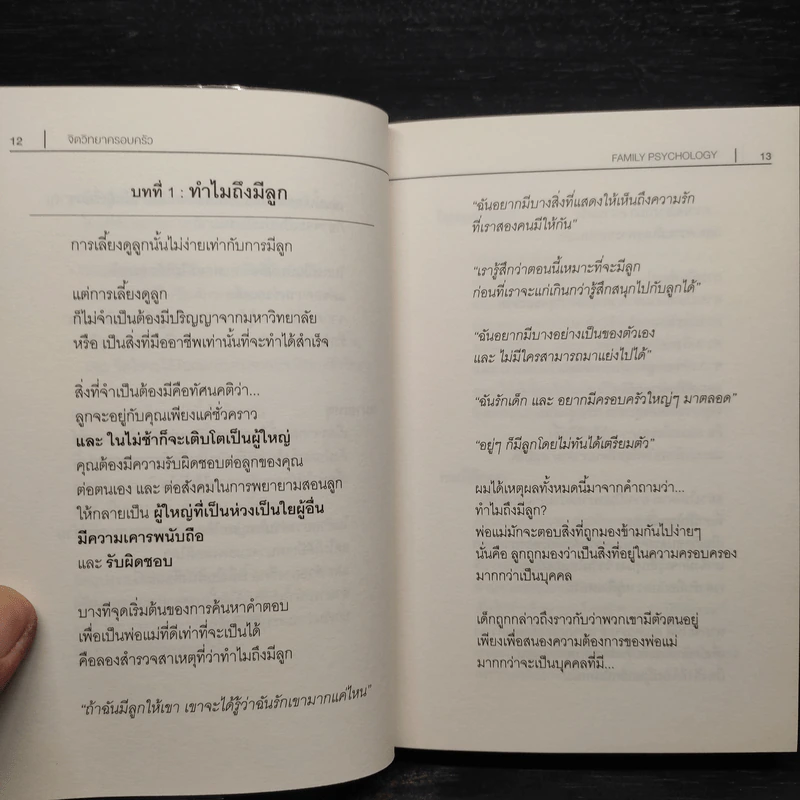 12
จิตวิทยาครอบครัว
บทที่ 1 : ทำไมถึงมีลูก
การเลี้ยงดูลูกนั้นไม่ง่ายเท่ากับการมีลูก
แต่การเลี้ยงดูลูก
ก็ไม่จำเป็นต้องมีปริญญาจากมหาวิทยาลัย
หรือ เป็นสิ่งที่มืออาชีพเท่านั้นที่จะทำได้สำเร็จ
สิ่งที่จำเป็นต้องมีคือทัศนคติว่า...
ลูกจะอยู่กับคุณเพียงแค่ชั่วคราว
และ ในไม่ช้าก็จะเติบโตเป็นผู้ใหญ่
คุณต้องมีความรับผิดชอบต่อลูกของคุณ
ต่อตนเอง และ ต่อสังคมในการพยายามสอนลูก
ให้กลายเป็น ผู้ใหญ่ที่เป็นห่วงเป็นใยผู้อื่น
มีความเคารพนับถือ
และ รับผิดชอบ
บางทีจุดเริ่มต้นของการค้นหาคำตอบ
เพื่อเป็นพ่อแม่ที่ดีเท่าที่จะเป็นได้
คือลองสำรวจสาเหตุที่ว่าทำไมถึงมีลูก
“ถ้าฉันมีลูกให้เขา เขาจะได้รู้ว่าฉันรักเขามากแค่ไหน”
FAMILY PSYCHOLOGY
13
“ฉันอยากมีบางสิ่งที่แสดงให้เห็นถึงความรัก
ที่เราสองคนมีให้กัน”
“เรารู้สึกว่าตอนนี้เหมาะที่จะมีลูก
ก่อนที่เราจะแก่เกินกว่ารู้สึกสนุกไปกับลูกได้”
“ฉันอยากมีบางอย่างเป็นของตัวเอง
และ ไม่มีใครสามารถมาแย่งไปได้”
“ฉันรักเด็ก และ อยากมีครอบครัวใหญ่ๆ มาตลอด”
“อยู่ๆ ก็มีลูกโดยไม่ทันได้เตรียมตัว”
ผมได้เหตุผลทั้งหมดนี้มาจากคำถามว่า...
ทำไมถึงมีลูก?
พ่อแม่มักจะตอบสิ่งที่ถูกมองข้ามกันไปง่ายๆ
นั่นคือ ลูกถูกมองว่าเป็นสิ่งที่อยู่ในความครอบครอง
มากกว่าเป็นบุคคล
เด็กถูกกล่าวถึงราวกับว่าพวกเขามีตัวตนอยู่
เพียงเพื่อสนองความต้องการของพ่อแม่
มากกว่าจะเป็นบุคคลที่มี...